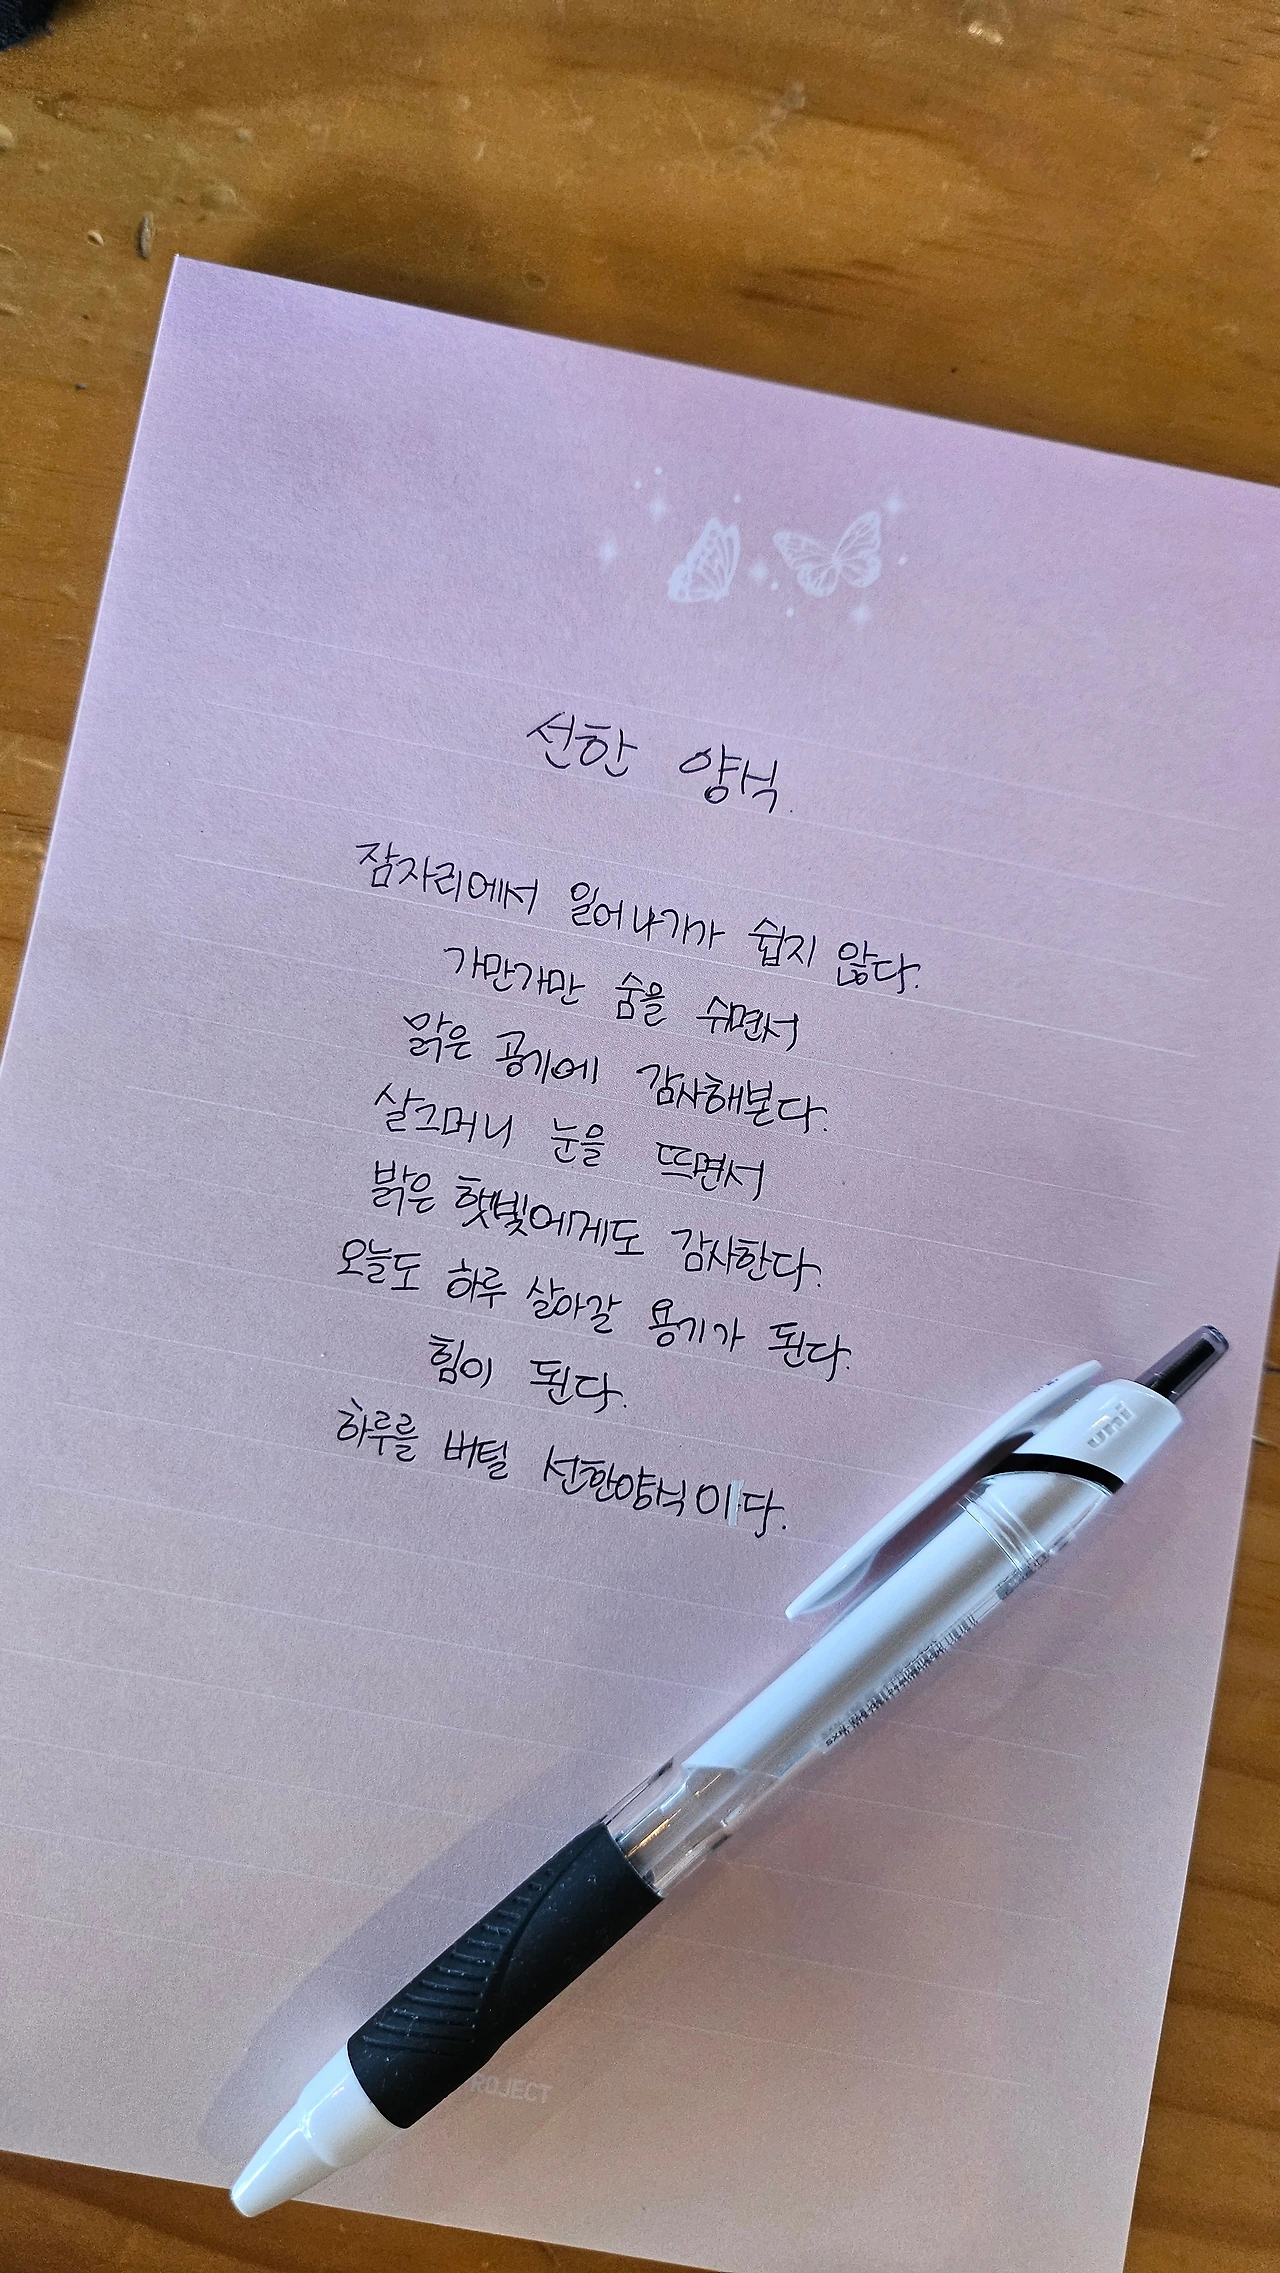 선한 양식.
잠자리에서 일어나기가 쉽지 않다.
가만가만 숨을 쉬면서
맑은 공기에 감사해본다.
살그머니 눈을 뜨면서
밝은 햇빛에게도 감사한다.
오늘도 하루 살아갈 용기가 된다.
힘이 된다.
하루를 버틸 선한양식이다.
uni
ROJECT